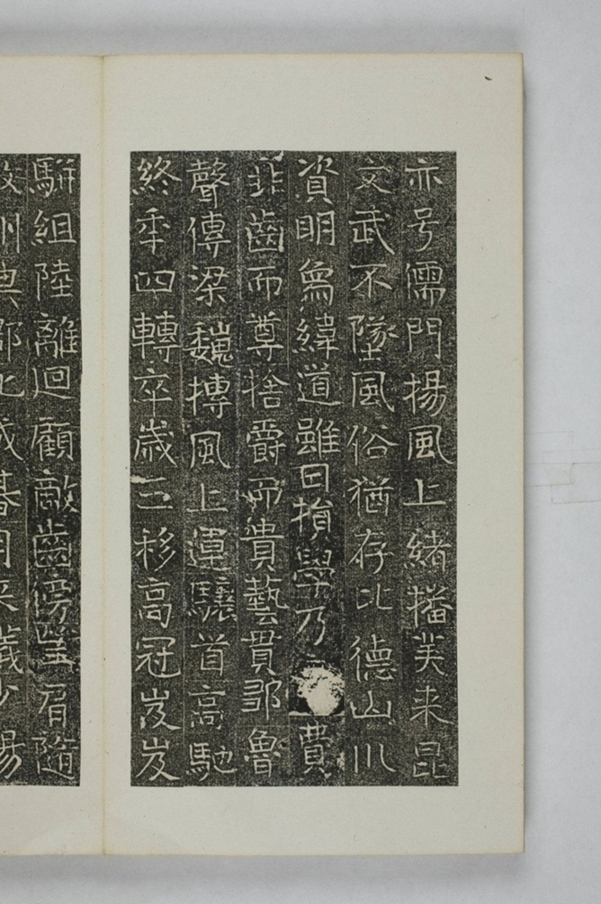 亦号儒門揚風上緒播芙来昆
文武不墜風俗猶存比德山川
資明爲緯道雖日損學乃費
非齒而尊捨爵而貴藝貫鄒魯
聲傳梁魏摶風上運驤首高馳
終秊四轉卒歳三移高冠岌岌
駢組陸離迴顧敵齒傍望肩随
州典郡化成朞月来歳